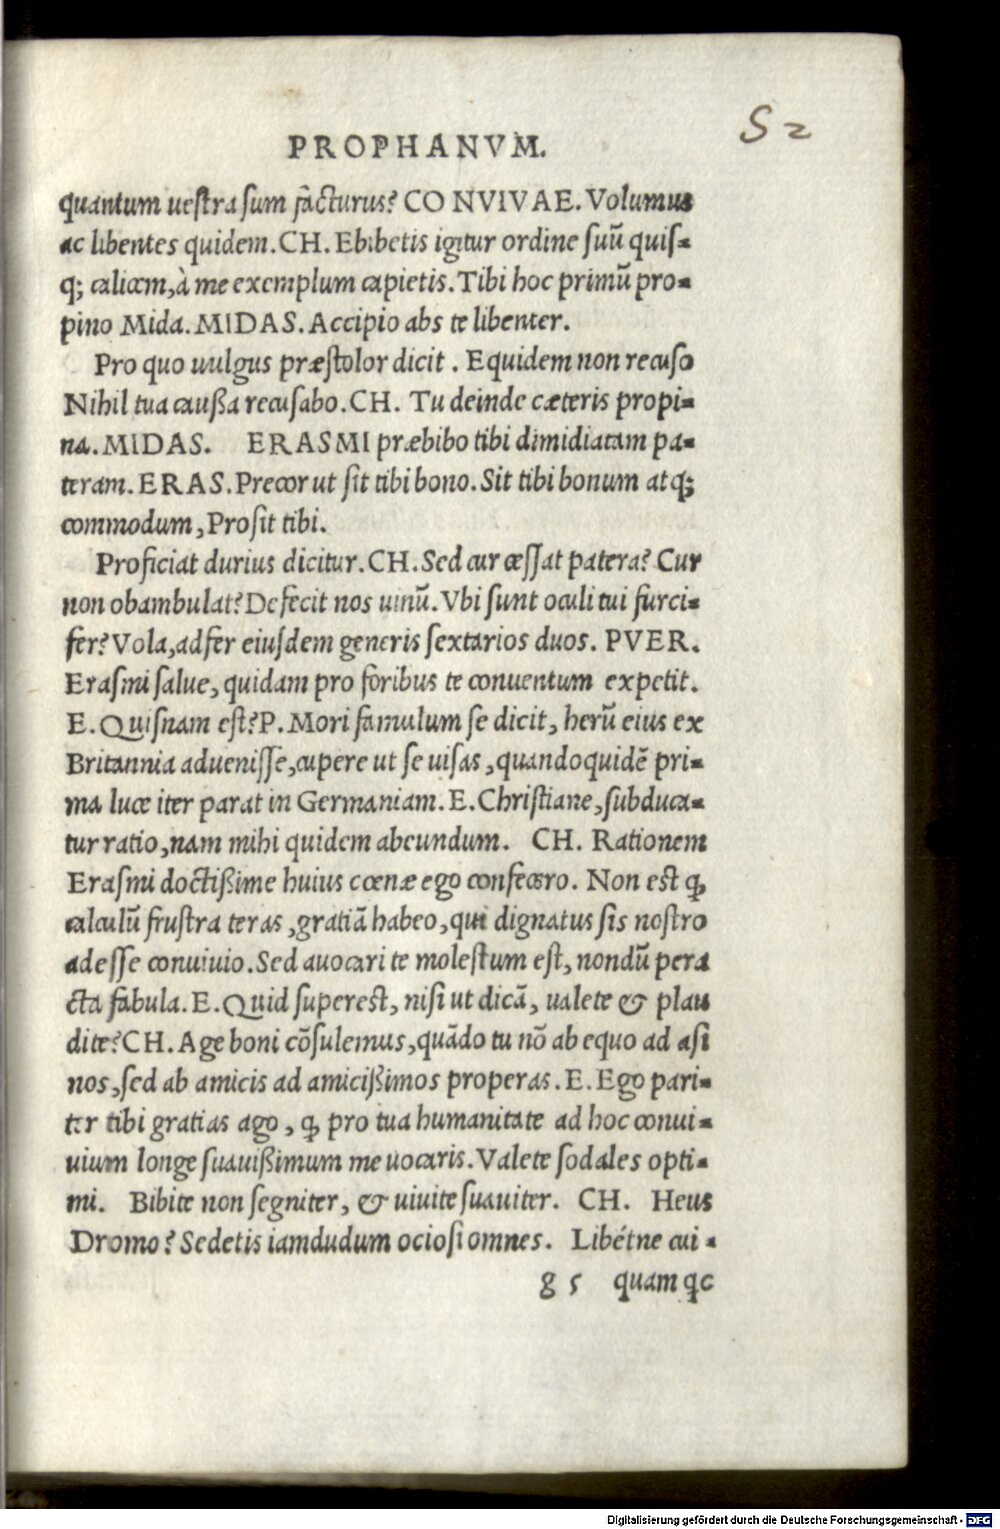 52
PROPHANVM.
quantum uestra sum facturus? CONVIVAE. Volumus
ac libentes quidem. CH. Ebibetis igitur ordine suũ quis-
q; calicem, à me exemplum capietis. Tibi hoc primũ pro-
pino Mida. MIDAS. Accipio abs te libenter.
Pro quo uulgus præstolor dicit. Equidem non recuso
Nihil tua caußa recusabo. CH. Tu deinde cæteris propi-
na. MIDAS. ERASMI præbibo tibi dimidiatam pa-
teram. ERAS. Precor ut sit tibi bono. Sit tibi bonum atq;
commodum, Prosit tibi.
Proficiat durius dicitur. CH. Sed cur cessat patera? Cur
non obambulat? Defecit nos uinũ. Vbi sunt oculi tui furci-
fer? Vola, adfer eiusdem generis sextarios duos. PVER.
Erasmi salue, quidam pro foribus te conuentum expetit.
E. Quisnam est? P. Mori famulum se dicit, herũ eius ex
Britannia aduenisse, cupere ut se uisas, quandoquidẽ pri-
ma luce iter parat in Germaniam. E. Christiane, subduca-
tur ratio, nam mihi quidem abeundum. CH. Rationem
Erasmi doctißime huius cœnæ ego confecero. Non est ꝙ
calculũ frustra teras, gratiã habeo, qui dignatus sis nostro
adesse conuiuio. Sed auocari te molestum est, nondũ pera
cta fabula. E. Quid superest, nisi ut dicã, ualete & plau
dite? CH. Age boni cõsulemus, quãdo tu nõ ab equo ad asi
nos, sed ab amicis ad amicißimos properas. E. Ego pari-
ter tibi gratias ago, ꝙ pro tua humanitate ad hoc conui-
uium longe suauißimum me uocaris. Valete sodales opti-
mi. Bibite non segniter, & uiuite suauiter. CH. Heus
Dromo? Sedetis iamdudum ociosi omnes. Libétne cui-
g 5 quam qc
Digitalisierung gefördert durch die Deutsche Forschungsgemeinschaft - DFG